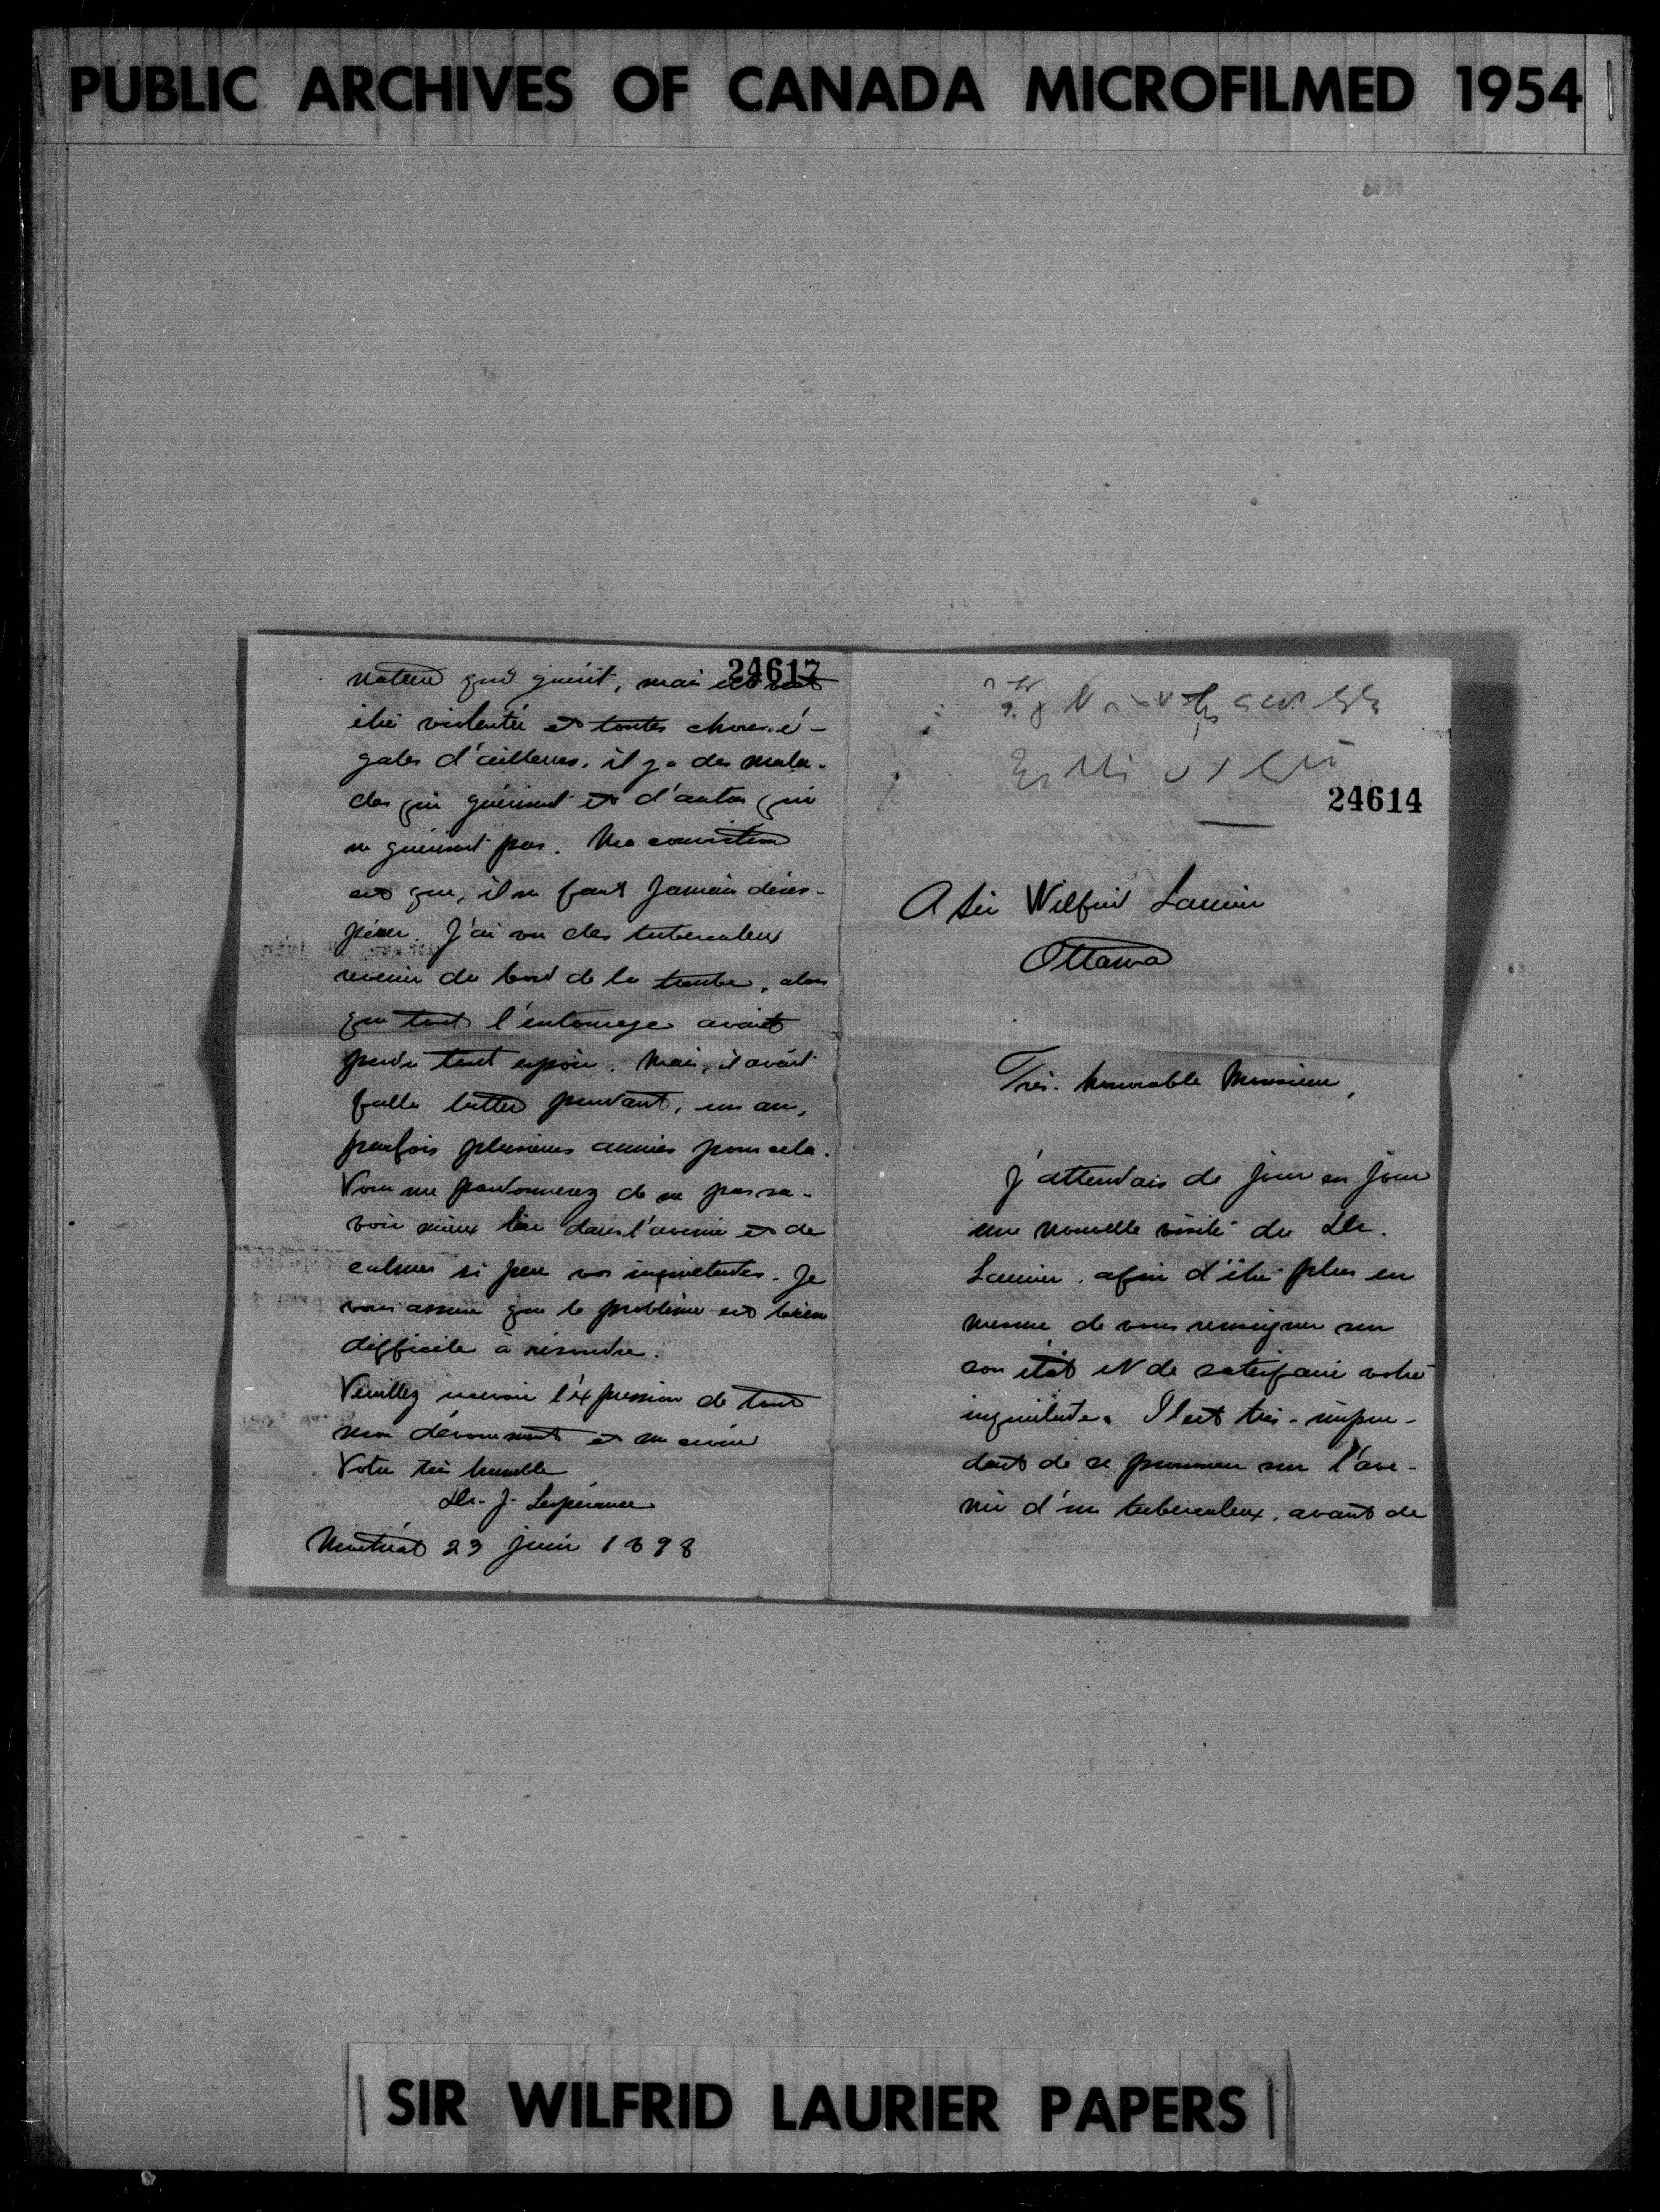 PUBLIC ARCHIVES OF CANADA MICROFILMED 1954
24617
nature qui guérit, mais
être violentée et toutes choses é-
gales d'ailleurs, il y a des mala-
des qui guérissent et d'autres qui
ne guérissent pas. Ma conviction
est que, il ne faut jamais déses-
pérer. J'ai vu des tuberculeux
revenir du bord de la tombe, alors
que tout l'entourage avait
perdu tout espoir. Mais, il avait
fallu lutter pendant, un an,
parfois plusieurs années pour cela.
Vous me pardonnerez de ne pas sa-
voir mieux lire dans l'avenir et de
calmer si peu vos inquiétudes. Je
vous assure que le problème est bien
difficile à résoudre.
Veuillez recevoir l'expression de tout
mon dévouement et me croire
Votre très humble
Dr. J. Lespérance
Montréal 23 juin 1898
24614
A Sir Wilfrid Laurier
Ottawa
Très-honorable Monsieur,
J'attendais de jour en jour
une nouvelle visite du Dr.
Laurier, afin d'être plus en
mesure de vous renseigner sur
son état et de satisfaire votre
inquiétude. Il est très-impru-
dent de se prononcer sur l'ave-
nir d'un tuberculeux, avant de
SIR WILFRID LAURIER PAPERS